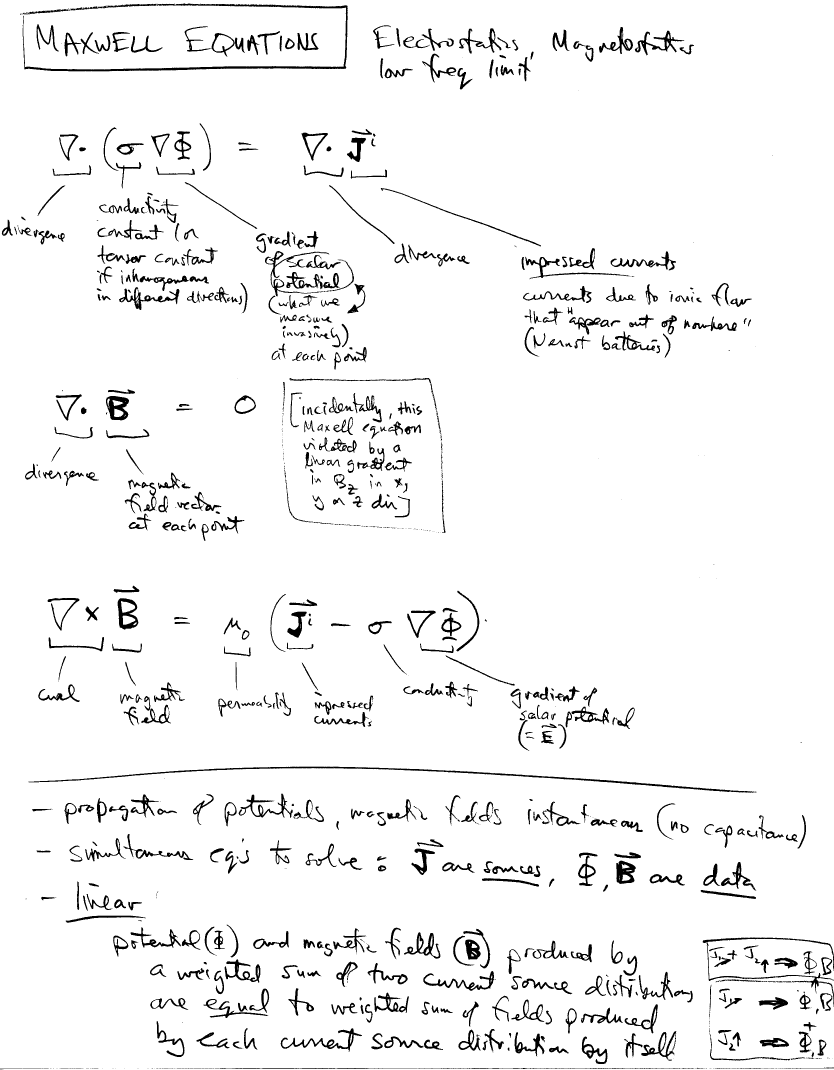 MAXWELL EQUATIONS
Electrostatics, Magnetostatics
low freq limit
∇· (σ ∇Φ) = ∇· J⃗ⁱ
divergence
conductivity
constant (or
tensor constant
if inhomogeneous
in different directions)
gradient
of scalar
potential
(what we
measure
invasively)
at each point
divergence
impressed currents
currents due to ionic flow
that "appear out of nowhere"
(Nernst batteries)
∇· B⃗ = 0
divergence
magnetic
field vector
at each point
[incidentally, this
Maxell equation
violated by a
linear gradient
in Bz in x,
y or z dir]
∇ × B⃗ = μ₀ (J⃗ⁱ − σ ∇Φ)
curl
magnetic
field
permeability
impressed
currents
conductivity
gradient of
salar potential
(= E⃗)
– propagation of potentials, magnetic fields instantaneous (no capacitance)
– simultaneous eq's to solve : J⃗ are sources, Φ, B⃗ are data
– linear
potential (Φ) and magnetic fields (B⃗) produced by
a weighted sum of two current source distributions
are equal to weighted sum of fields produced
by each current source distribution by itself
J₁→ + J₂↑ ⇒ Φ,B
↑
J₁→ ⇒ Φ,B
+
J₂↑ ⇒ Φ,B